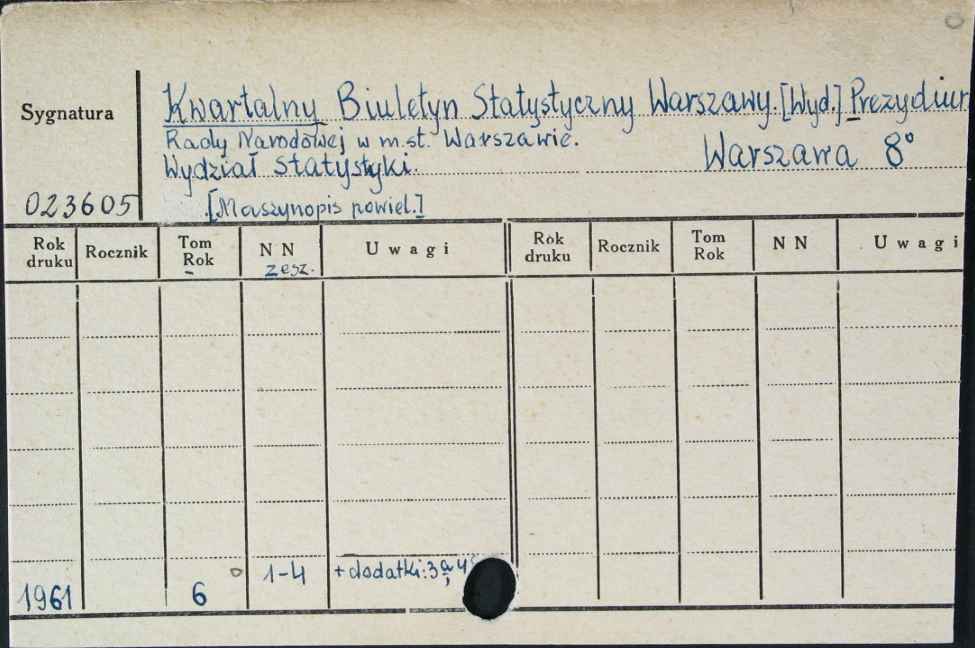 Sygnatura
Kwartalny Biuletyn Statystyczny Warszawy. [Wyd.] Prezydium
Rady Narodowej w m.st. Warszawie.
Wydział Statystyki. Warszawa 8°
023605 [Maszynopis powiel.]
Rok druku Rocznik Tom Rok N N zesz. Uwagi Rok druku Rocznik Tom Rok N N Uwagi
1961 6 1-4 + dodatki: 3a, 4